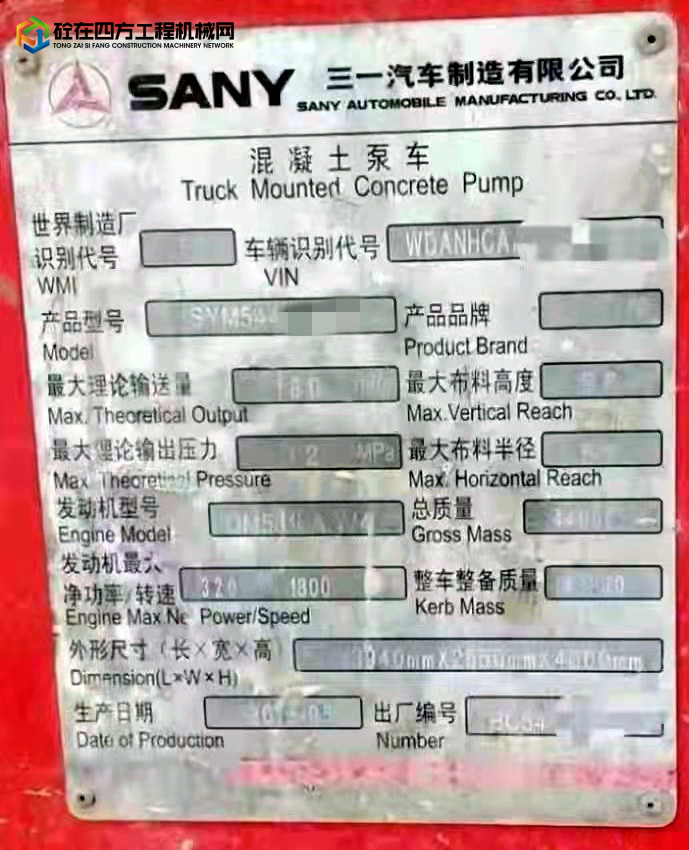 砼在四方工程机械网
TONG ZAI SI FANG CONSTRUCTION MACHINERY NETWORK
SANY 三一汽车制造有限公司
SANY AUTOMOBILE MANUFACTURING CO.,LTD.
混凝土泵车
Truck Mounted Concrete Pump
世界制造厂
识别代号 车辆识别代号 WDANHCA
WMI VIN
产品型号 SYM544 产品品牌
Model Product Brand
最大理论输送量 最大布料高度
Max. Theoretical Output Max.Vertical Reach
最大理论输出压力 12 MPa 最大布料半径
Max. Theoretical Pressure Max. Horizontal Reach
发动机型号 总质量
Engine Model Gross Mass
发动机最大
净功率/转速 320 1800 整车整备质量
Engine Max.Ne Power/Speed Kerb Mass
外形尺寸(长×宽×高)
Dimension(L×W×H)
生产日期 出厂编号
Date of Production Number